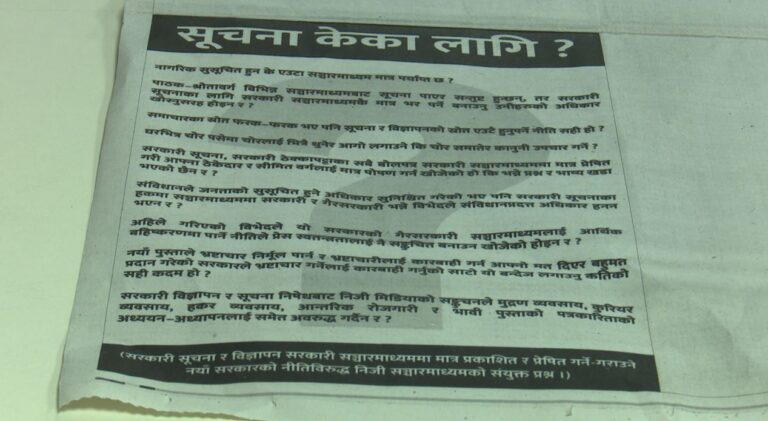 सूचना केका लागि ?
नागरिक सुसूचित हुन के एउटा सञ्चारमाध्यम मात्र पर्याप्त छ ?
पाठक-श्रोतावर्ग विभिन्न सञ्चारमाध्यमबाट सूचना पाएर सन्तुष्ट हुन्छन्, तर सरकारी
सूचनाका लागि सरकारी सञ्चारमाध्यमकै मात्र भर पर्ने बनाउनु उनीहरूको अधिकार
खोस्नुसरह होइन र ?
समाचारका स्रोत फरक-फरक भए पनि सूचना र विज्ञापनको स्रोत एउटै हुनुपर्ने नीति सही हो ?
घरभित्र चोर पसेमा चोरलाई भित्रै थुनेर आगो लगाउने कि चोर समातेर कानुनी उपचार गर्ने ?
सरकारी सूचना, सरकारी ठेक्कापट्टाका सबै बोलपत्र सरकारी सञ्चारमाध्यममा मात्र प्रेषित
गरी आफ्ना ठेकेदार र सीमित वर्गलाई मात्र पोषण गर्न खोजेको हो कि भन्ने प्रश्न र भाष्य खडा
भएको छैन र ?
संविधानले जनताको सुसूचित हुने अधिकार सुनिश्चित गरेको भए पनि सरकारी सूचनाका
हकमा सञ्चारमाध्यममा सरकारी र गैरसरकारी भन्ने विभेदले संविधानप्रदत्त अधिकार हनन
भएन र ?
अहिले गरिएको विभेदले यो सरकारको गैरसरकारी सञ्चारमाध्यमलाई आर्थिक
बहिष्करणमा पार्ने नीतिले प्रेस स्वतन्त्रतालाई नै सङ्कुचित बनाउन खोजेको होइन र ?
नयाँ पुस्ताले भ्रष्टाचार निर्मूल पार्न र भ्रष्टाचारीलाई कारबाही गर्न आफ्नो मत दिएर बहुमत
प्रदान गरेको सरकारले भ्रष्टाचार गर्नेलाई कारबाही गर्नुको साटो यो बन्देज लगाउनु कतिको
सही कदम हो ?
सरकारी विज्ञापन र सूचना निषेधबाट निजी मिडियाको सङ्कुचनले मुद्रण व्यवसाय, कुरियर
व्यवसाय, हकर व्यवसाय, आन्तरिक रोजगारी र भावी पुस्ताको पत्रकारिताको
अध्ययन-अध्यापनलाई समेत अवरुद्ध गर्दैन र ?
(सरकारी सूचना र विज्ञापन सरकारी सञ्चारमाध्यममा मात्र प्रकाशित र प्रेषित गर्ने-गराउने
नयाँ सरकारको नीतिविरुद्ध निजी सञ्चारमाध्यमको संयुक्त प्रश्न ।)